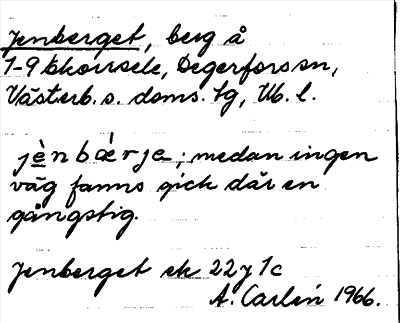 Jenberget, berg å
1-9 Ekorrsele, Degerfors sn,
Västerb. s. doms. lg, Vb. l.
jènbærje; medan ingen
väg fanns gick där en
gångstig.
Jenberget ek 22 y 1c
A. Carlén 1966.